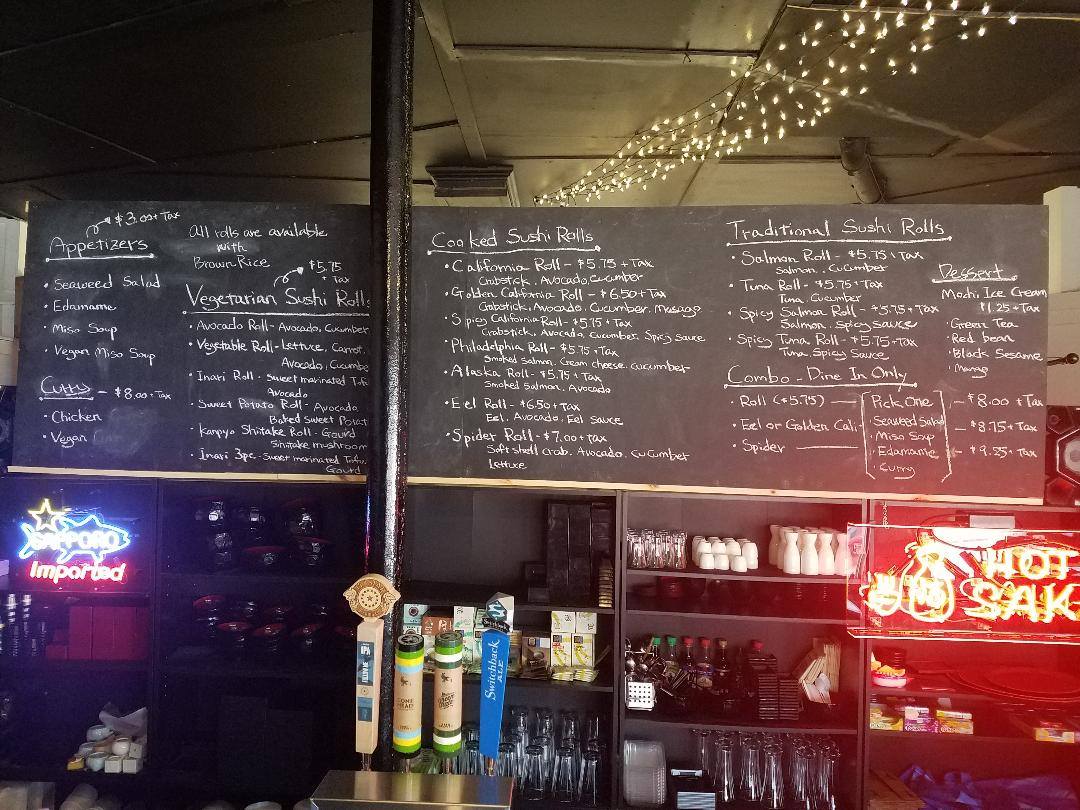 $3.00 + Tax
Appetizers
• Seaweed Salad
• Edamame
• Miso Soup
• Vegan Miso Soup
Curry - $8.00 + Tax
• Chicken
• Vegan
All rolls are available
with
Brown Rice
$5.75
+ Tax
Vegetarian Sushi Rolls
• Avocado Roll - Avocado, Cucumber
• Vegetable Roll - Lettuce, Carrot,
Avocado, Cucumbe
• Inari Roll - Sweet marinated Tofu
Avocado
• Sweet Potato Roll - Avocado
Baked Sweet Potat
• Kanpyo Shiitake Roll - Gourd
Shiitake mushroom
• Inari 3pc - Sweet marinated Tofu,
Gourd
Cooked Sushi Rolls
• California Roll - $5.75 + Tax
Crabstick, Avocado, Cucumber
• Golden California Roll - $6.50 + Tax
Crabstick, Avocado, Cucumber, Masago
• Spicy California Roll - $5.75 + Tax
Crabstick, Avocado, Cucumber, Spicy Sauce
• Philadelphia Roll - $5.75 + Tax
Smoked Salmon, Cream cheese, cucumber
• Alaska Roll - $5.75 + Tax
Smoked Salmon, Avocado
• Eel Roll - $6.50 + Tax
Eel, Avocado, Eel Sauce
• Spider Roll - $7.00 + Tax
Soft shell crab, Avocado, Cucumber
Lettuce
Traditional Sushi Rolls
• Salmon Roll - $5.75 + Tax
Salmon, Cucumber
• Tuna Roll - $5.75 + Tax
Tuna, Cucumber
• Spicy Salmon Roll - $5.75 + Tax
Salmon, Spicy sauce
• Spicy Tuna Roll - $5.75 + Tax
Tuna, Spicy Sauce
Dessert
Mochi Ice Cream
$1.25 + Tax
• Green Tea
• Red bean
• Black Sesame
• Mango
Combo - Dine In Only
• Roll ($5.75) — Pick One — $8.00 + Tax
• Eel or Golden Cali - Seaweed Salad — $8.75 + Tax
• Miso Soup
• Spider — Edamame — $9.25 + Tax
• Curry
SAPPORO
Imported
HOT
SAK
IPA
Switchback
ALE